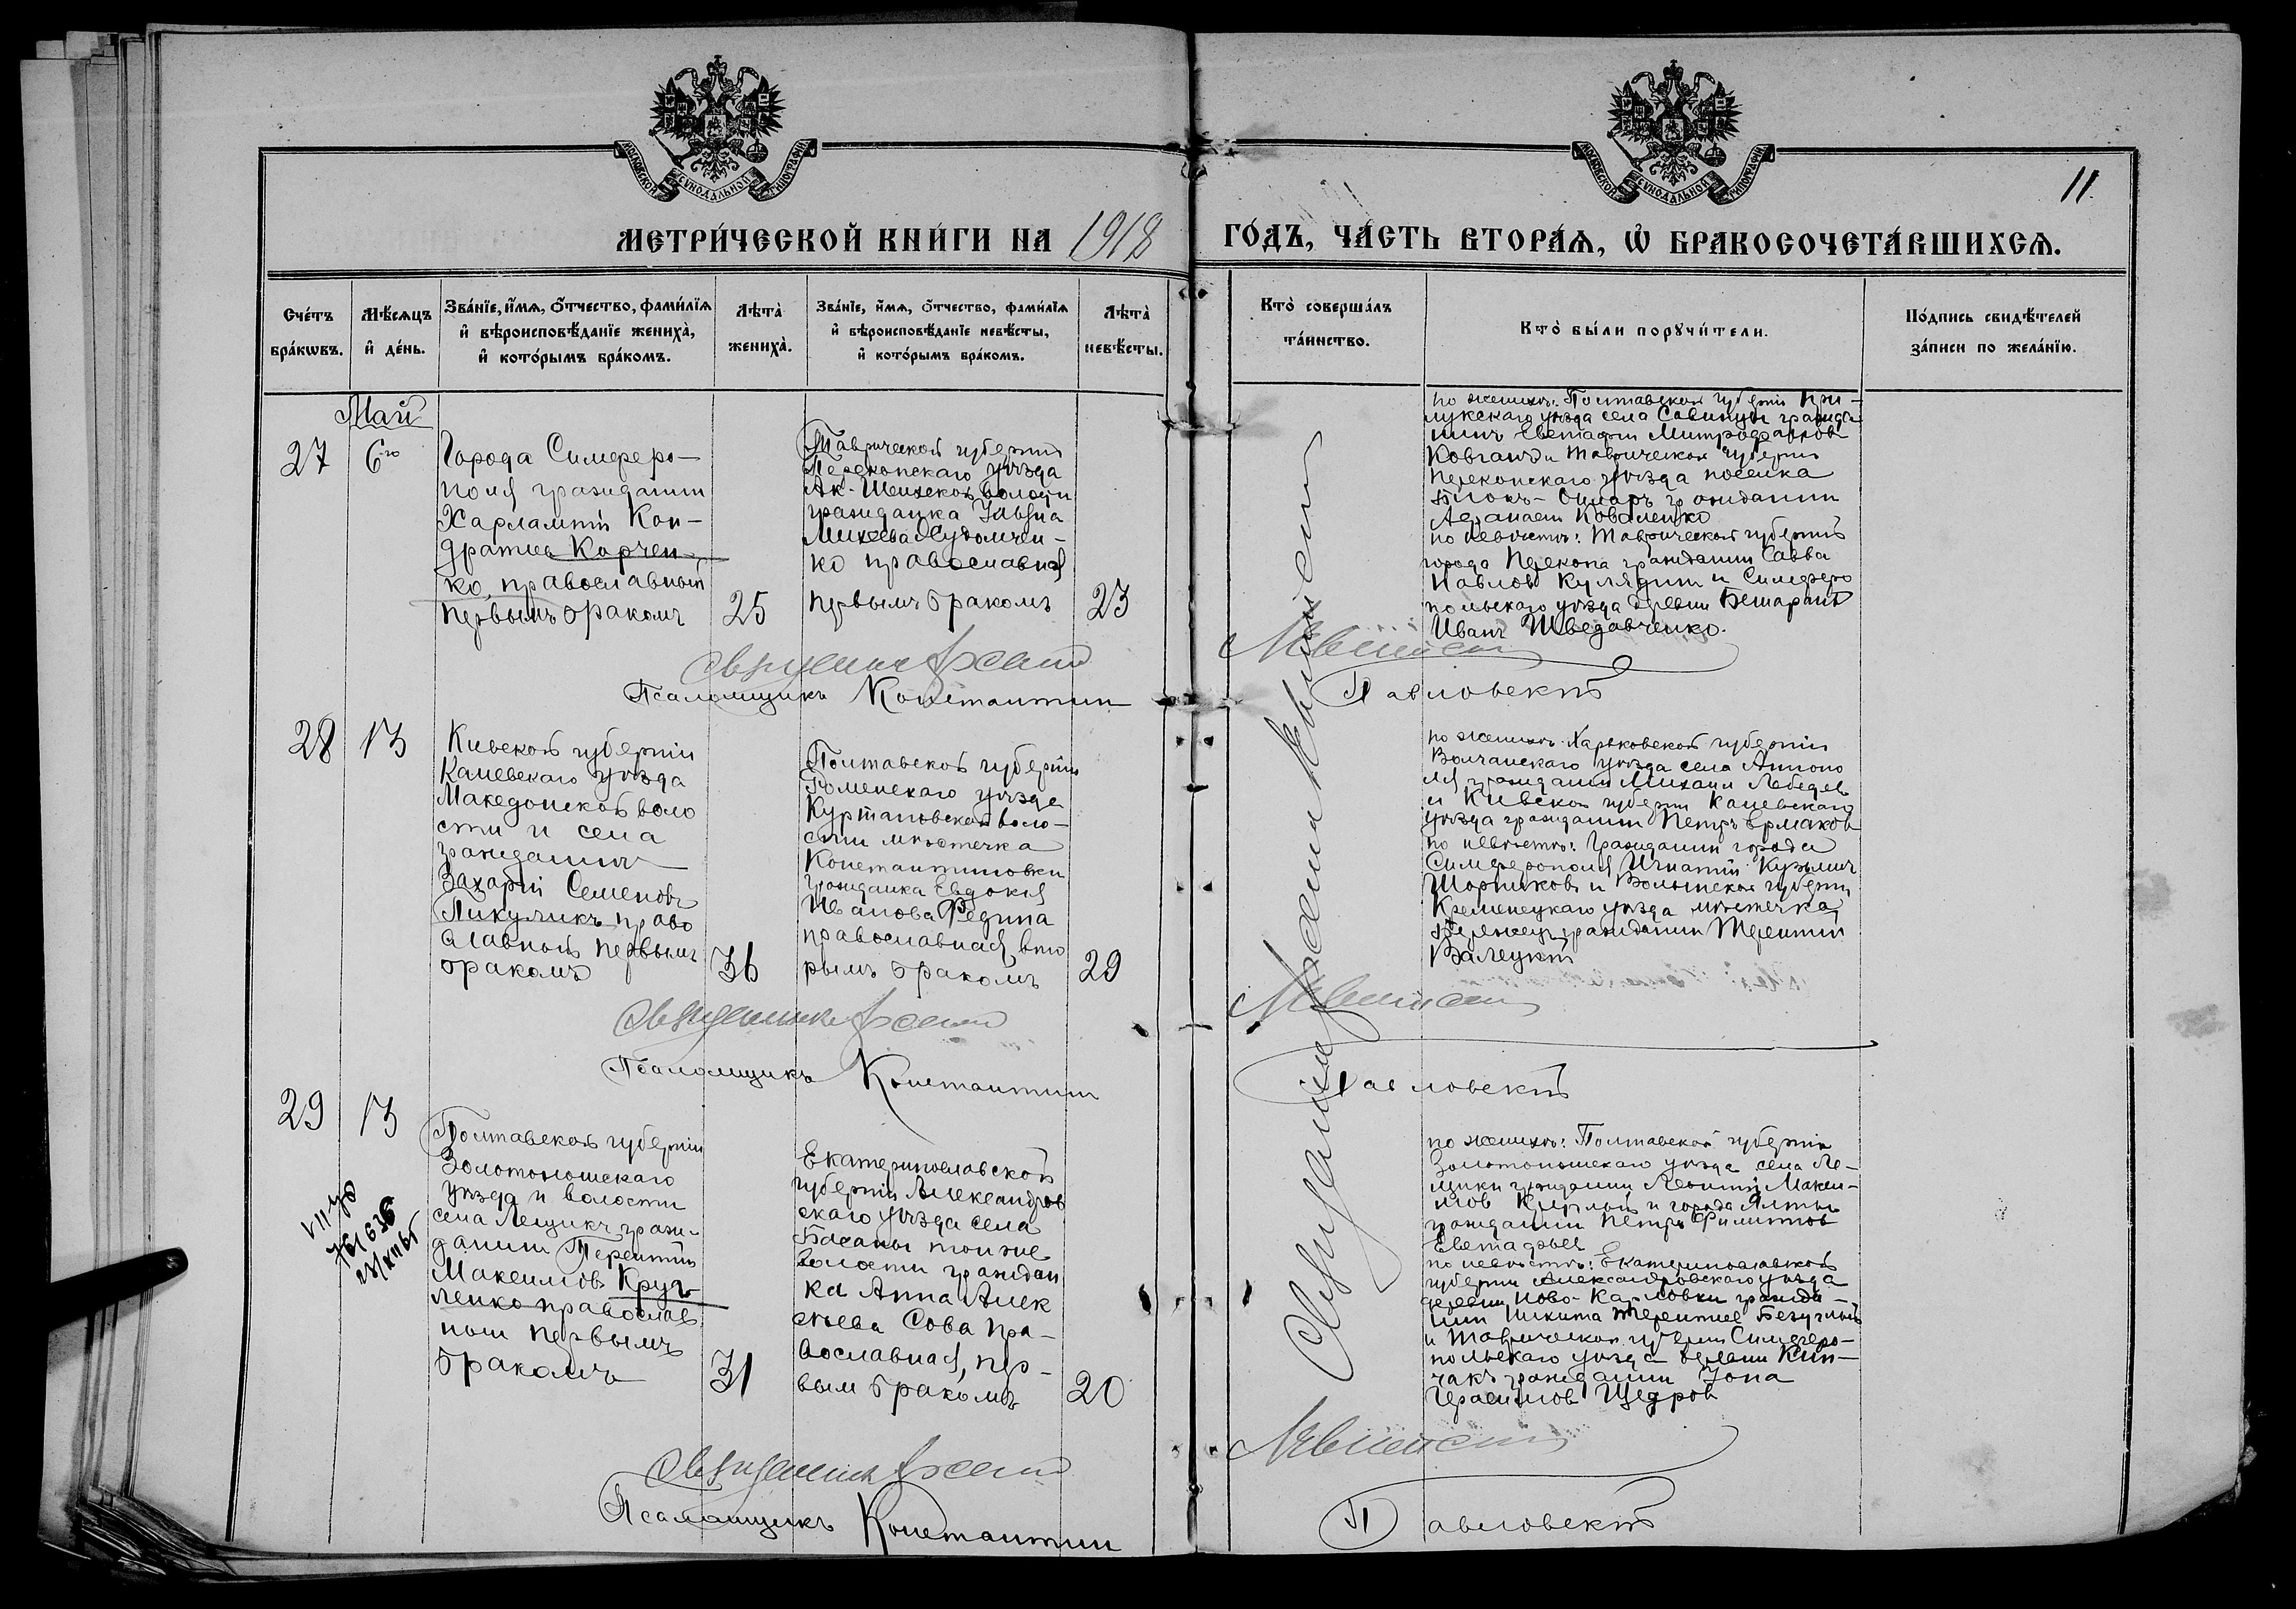 МОСКОВСКОЙ СѴНОДАЛЬНОЙ ТИПОГРАФІИ
МОСКОВСКОЙ СѴНОДАЛЬНОЙ ТИПОГРАФІИ
11.
МЕТРИ́ЧЕСКОЙ КНИ́ГИ НА 1918 ГО́ДЪ, ЧА́СТЬ ВТОРА́Ѧ, Ѡ҆ БРАКОСОЧЕТА́ВШИХСѦ.
Сче́тъ
бра́кѡвъ.
Мѣ́сѧцъ
и҆ де́нь.
Зва́нїе, и҆́мѧ, ѻ҆́тчество, фами́лїѧ
и҆ вѣроисповѣ́данїе жениха̀,
и҆ кото́рымъ бра́комъ.
Лѣта̀
жениха̀.
Зва́нїе, и҆́мѧ, ѻ҆́тчество, фами́лїѧ
и҆ вѣроисповѣ́данїе невѣ́сты,
и҆ кото́рымъ бра́комъ.
Лѣта̀
невѣ́сты.
Кто̀ соверша́лъ
та́инство.
Кто̀ бы́ли порꙋчи́тели.
По́дпись свидѣ́телей
за́писи по жела́нїю.
Май
27
6го
Города Симферо-
поля гражданин
Харлампій Кон-
дратьев Корчен-
ко, православный
первымъ бракомъ
25
Таврической губерніи
Перекопскаго уѣзда
Ак-Шеихской волости
гражданка
Михеева
ко православная
первымъ бракомъ
23
по женихѣ: Полтавской губерніи При-
лукскаго уѣзда села Савинцы гражда
нинъ Евстафий Митрофанов
Ковганъ и Таврической губерніи
Перекопскаго уѣзда поселка
гражданин
Афанасій Коваленко
по невѣстѣ: Таврической губерніи
города Перекопа гражданин Савва
Павловъ Кулядин и Симферо
польскаго уѣзда деревни Бешарань
Иванъ Шведавченко.
Священникъ Арсений
Псаломщикъ Константин Павловскій
28
13
Киевской губерніи
Каневскаго уѣзда
Македонской воло
сти и села
гражданинъ
Захарій Семеновъ
Пикуликъ право
славный первымъ
бракомъ
36
Полтавской губерніи
Роменскаго уѣзда
воло-
сти мѣстечка
Константиновки
гражданка Евдокія
Иванова Редина
православная вто
рымъ бракомъ
29
по женихѣ: Харьковской губерніи
Волчанскаго уѣзда села
гражданин Михаил Лебедев
и Киевской губерніи Каневскаго
уѣзда гражданин Петръ Ермаков
по невѣстѣ: гражданин города
Симферополя Игнатій Кузьмич
Шорников и Волынской губерніи
Кременецкаго уѣзда мѣстечка
гражданин Терентий
Валецкій
Священникъ Арсений
Псаломщикъ Константин Павловскій
29
13
Полтавской губерніи
Золотоношскаго
уѣзда и волости
села Лещикъ граж-
данин Терентій
Максимовъ Круг
ленко православ
ный первымъ
бракомъ
31
Екатеринославской
губерніи Александров
скаго уѣзда села
Басань тойже
волости граждан
ка Анна Алек
сѣева Сова пра-
вославная, пер-
вым бракомъ
20
по женихѣ: Полтавской губерніи
Золотоношскаго уѣзда села Ле-
щики гражданин Леонтий Макси-
мов Круглый и города Ялты
гражданин Петръ Филиппов
Евстафьев
по невѣстѣ: Екатеринославской
губерніи Александровскаго уѣзда
деревни Ново-Карловки гражда-
нин Никита Терентиев Безуглый
и Таврической губерніи Симферо-
польскаго уѣзда деревни Кип-
чакъ гражданин Іона
Герасимов Щедров
Священникъ Арсений
Псаломщикъ Константин Павловскій